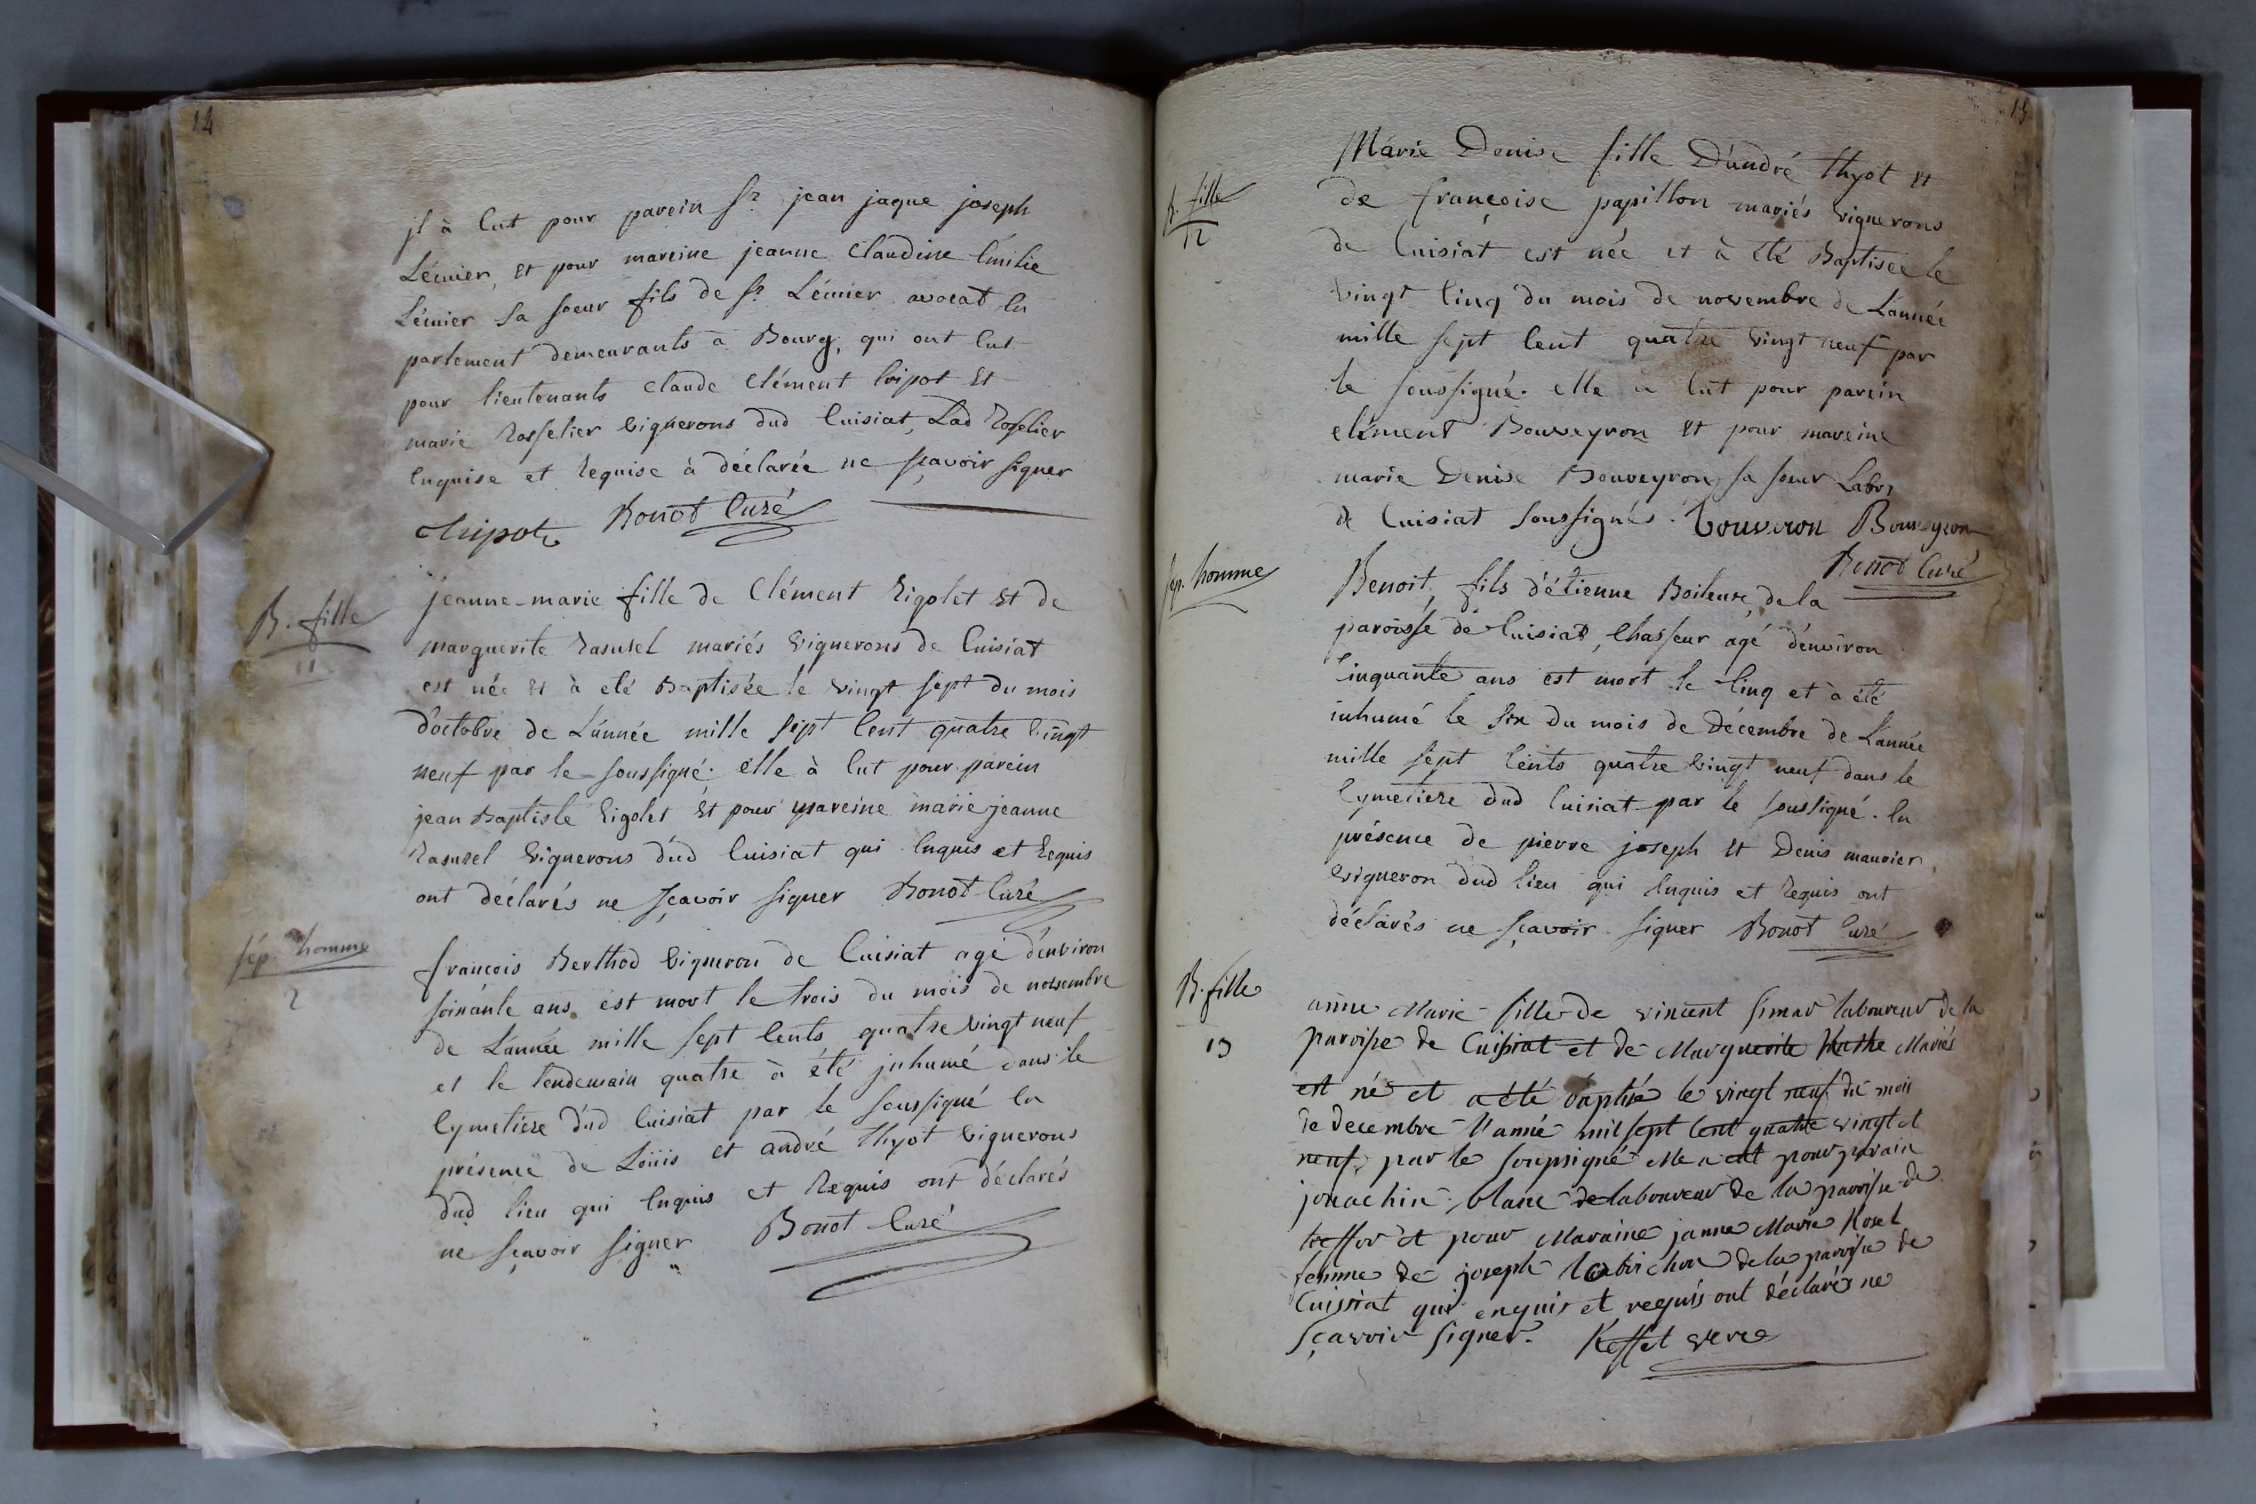 14
jl à Eut pour parein sr. jean jaque joseph
Lémier, et pour mareine jeanne Claudine Emilie
Lémier sa soeur fils de sr. Lémier avocat En
parlement demeurants à Bourg, qui ont Eut
pour lieutenants Claude Clément Cripot Et
marie Rosselier vignerons dud Cuisiat, Lad Rosselier
Enquise et Requise à déclarée ne sçavoir signer
Chipot Bonot Curé
B. fille
11
jeanne-marie fille de Clément Rigolet Et de
marguerite Rasurel mariés vignerons de Cuisiat
est née Et à eté Baptisée le vingt sept du mois
d'octobre de L'année mille sept Cent quatre vingt
neuf par le soussigné; elle à Eut pour parein
jean Baptiste Rigolet Et pour mareine marie jeanne
Rasurel vignerons dud Cuisiat qui Enquis et Requis
ont déclarés ne sçavoir signer Bonot Curé
sép. homme
2
françois Berthod vigneron de Cuisiat agé d'environ
soixante ans est mort le trois du mois de novembre
de L'année mille sept Cents quatre vingt neuf
et le lendemain quatre à été inhumé dans le
Cymetiere dud Cuisiat par le soussigné En
présence de Loüis et andré thyot vignerons
dud lieu qui Enquis et Requis ont déclarés
ne sçavoir signer Bonot Curé
15
B. fille
12
Marie Denise fille D'andré thyot Et
de françoise papillon mariés vignerons
de Cuisiat est née et à été Baptisée le
vingt Cinq du mois de novembre de L'année
mille sept Cent quatre vingt neuf par
le soussigné. elle a Eut pour parein
clément Bouveyron Et pour mareine
marie Denise Bouveyron sa soeur Labrs
de Cuisiat soussignés. Bouveron Bouveyron
Bonot Curé
sep. homme
Benoit, fils d'étienne Boileux, de la
paroisse de Cuisiat, Chasseur agé d'environ
Cinquante ans est mort le Cinq et à été
inhumé le six du mois de Décembre de L'année
mille sept Cents quatre vingt neuf dans le
Cymetiere dud Cuisiat par le soussigné. En
présence de pierre joseph Et Denis mauvier
vigneron dud lieu qui Enquis et Requis ont
déclarés ne sçavoir signer Bonot Curé
B. fille
13
anne Marie fille de vincent simar laboureur de la
paroisse de Cuisiat et de Marguerite Mariés
est né et a été baptisé le vingt neuf du mois
de decembre l'anné mil sept Cent quatre vingt et
neuf par le soussigné elle a eut pour parain
jouachin blanc de laboureur de la paroisse de
treffor et pour Maraine janne Marie Rosel
femme de joseph de la paroisse de
Cuissiat qui enquis et requis ont déclarés ne
sçavoir signer.